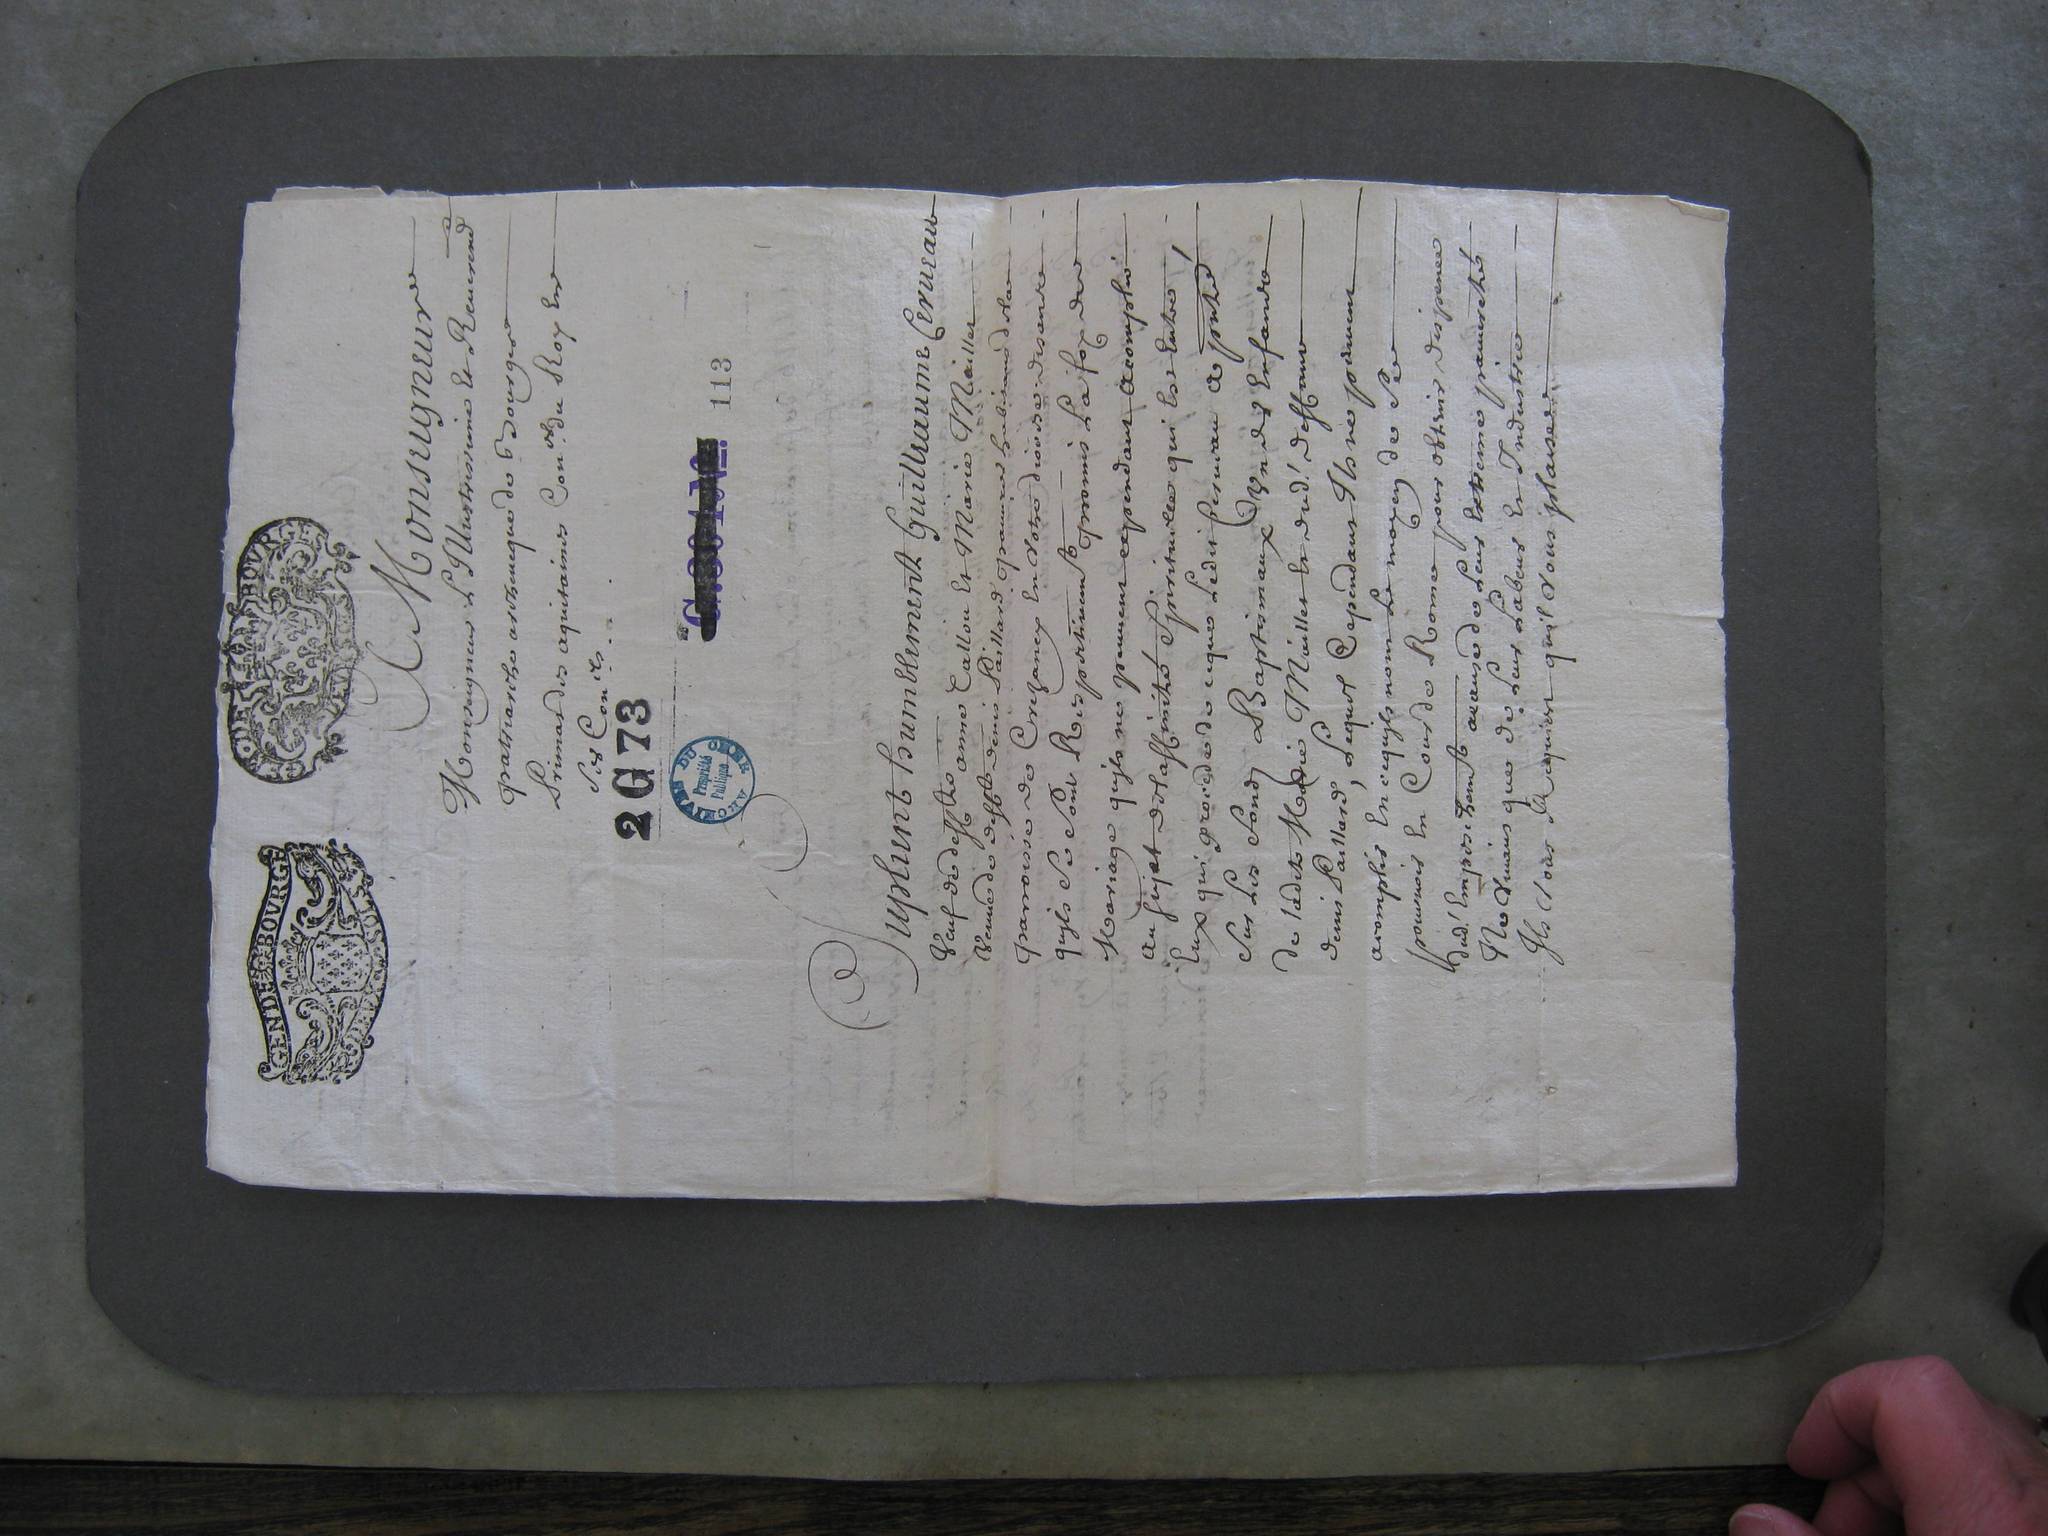 GEN DE BOVRGE
GEN DE BOVRGE
Monseigneur
Monseigneur L'Illustrissime et Reverend
patriarche archevesque de Bourges
Primat des aquitaines Con.er du Roy En
Ses Con.ls
2 G 73
C. 304 No. 113
ARCHIVES DU CHER
Propriété
Publique
Suplient humblement Guillaume Cerveau
Veuf de deffte anne Callou Et Marie Maillet
Veufve de defft denis Paillard
parroisse de Crezancy En votre dioceze disants
quils Se Sont Respectivement promis La foy de
Mariage quils ne peuvent cependant accomplir
au Sujet de laffinité Spirituelle qui Est Entre
Eux qui procede de ceque Ledit Cerveau a porté
Sur Les Fonds Baptimaux Un des Enfands
de ladite Marie Maillet Et dud. deffunt
denis Paillard, Lequel Cependant Ils ne peuvent
accomplir En cequils nont Le moyen de Se
pourvoir En Cour de Rome pour obtenir dispence
dud. Empeschement acause de Leur Extreme pauvreté
Ne Vivans que de Leurs Labeurs Et Industrie
Ils Vous Requierent quil Vous plaise